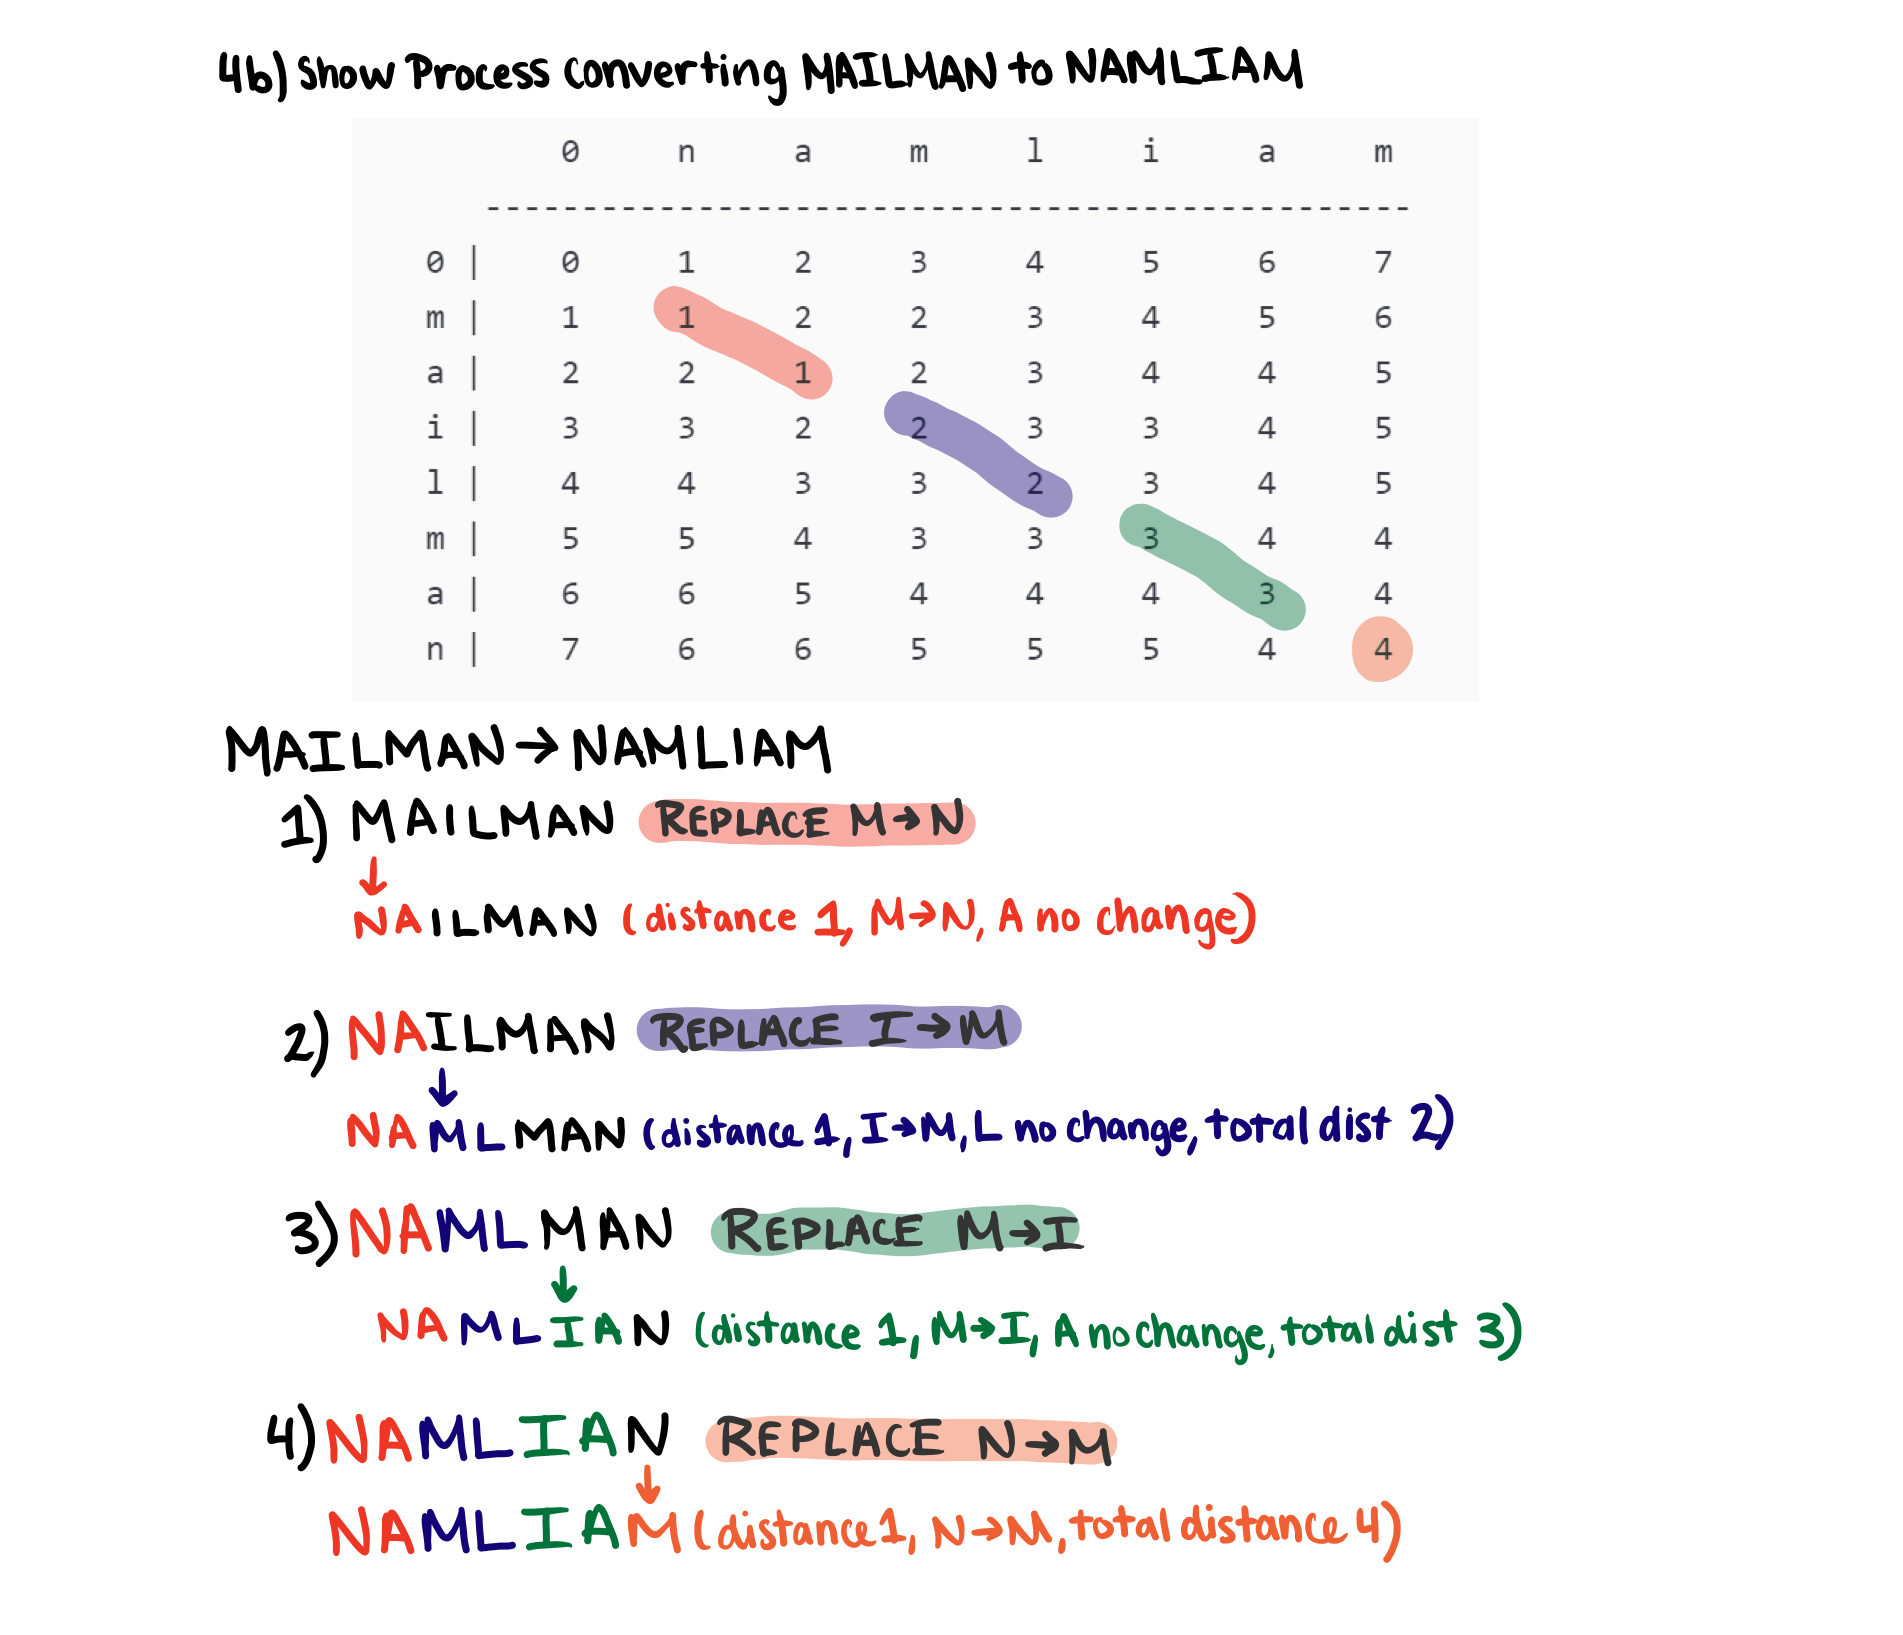 4b) Show Process converting MAILMAN to NAMLIAM
0 n a m l i a m
------------------------------------------------
0 | 0 1 2 3 4 5 6 7
m | 1 1 2 2 3 4 5 6
a | 2 2 1 2 3 4 4 5
i | 3 3 2 2 3 3 4 5
l | 4 4 3 3 2 3 4 5
m | 5 5 4 3 3 3 4 4
a | 6 6 5 4 4 4 3 4
n | 7 6 6 5 5 5 4 4
MAILMAN → NAMLIAM
1) MAILMAN REPLACE M→N
↓
NAILMAN (distance 1, M→N, A no change)
2) NAILMAN REPLACE I→M
↓
NAMLMAN (distance 1, I→M, L no change, total dist 2)
3) NAMLMAN REPLACE M→I
↓
NAMLIAN (distance 1, M→I, A no change, total dist 3)
4) NAMLIAN REPLACE N→M
↓
NAMLIAM (distance 1, N→M, total distance 4)